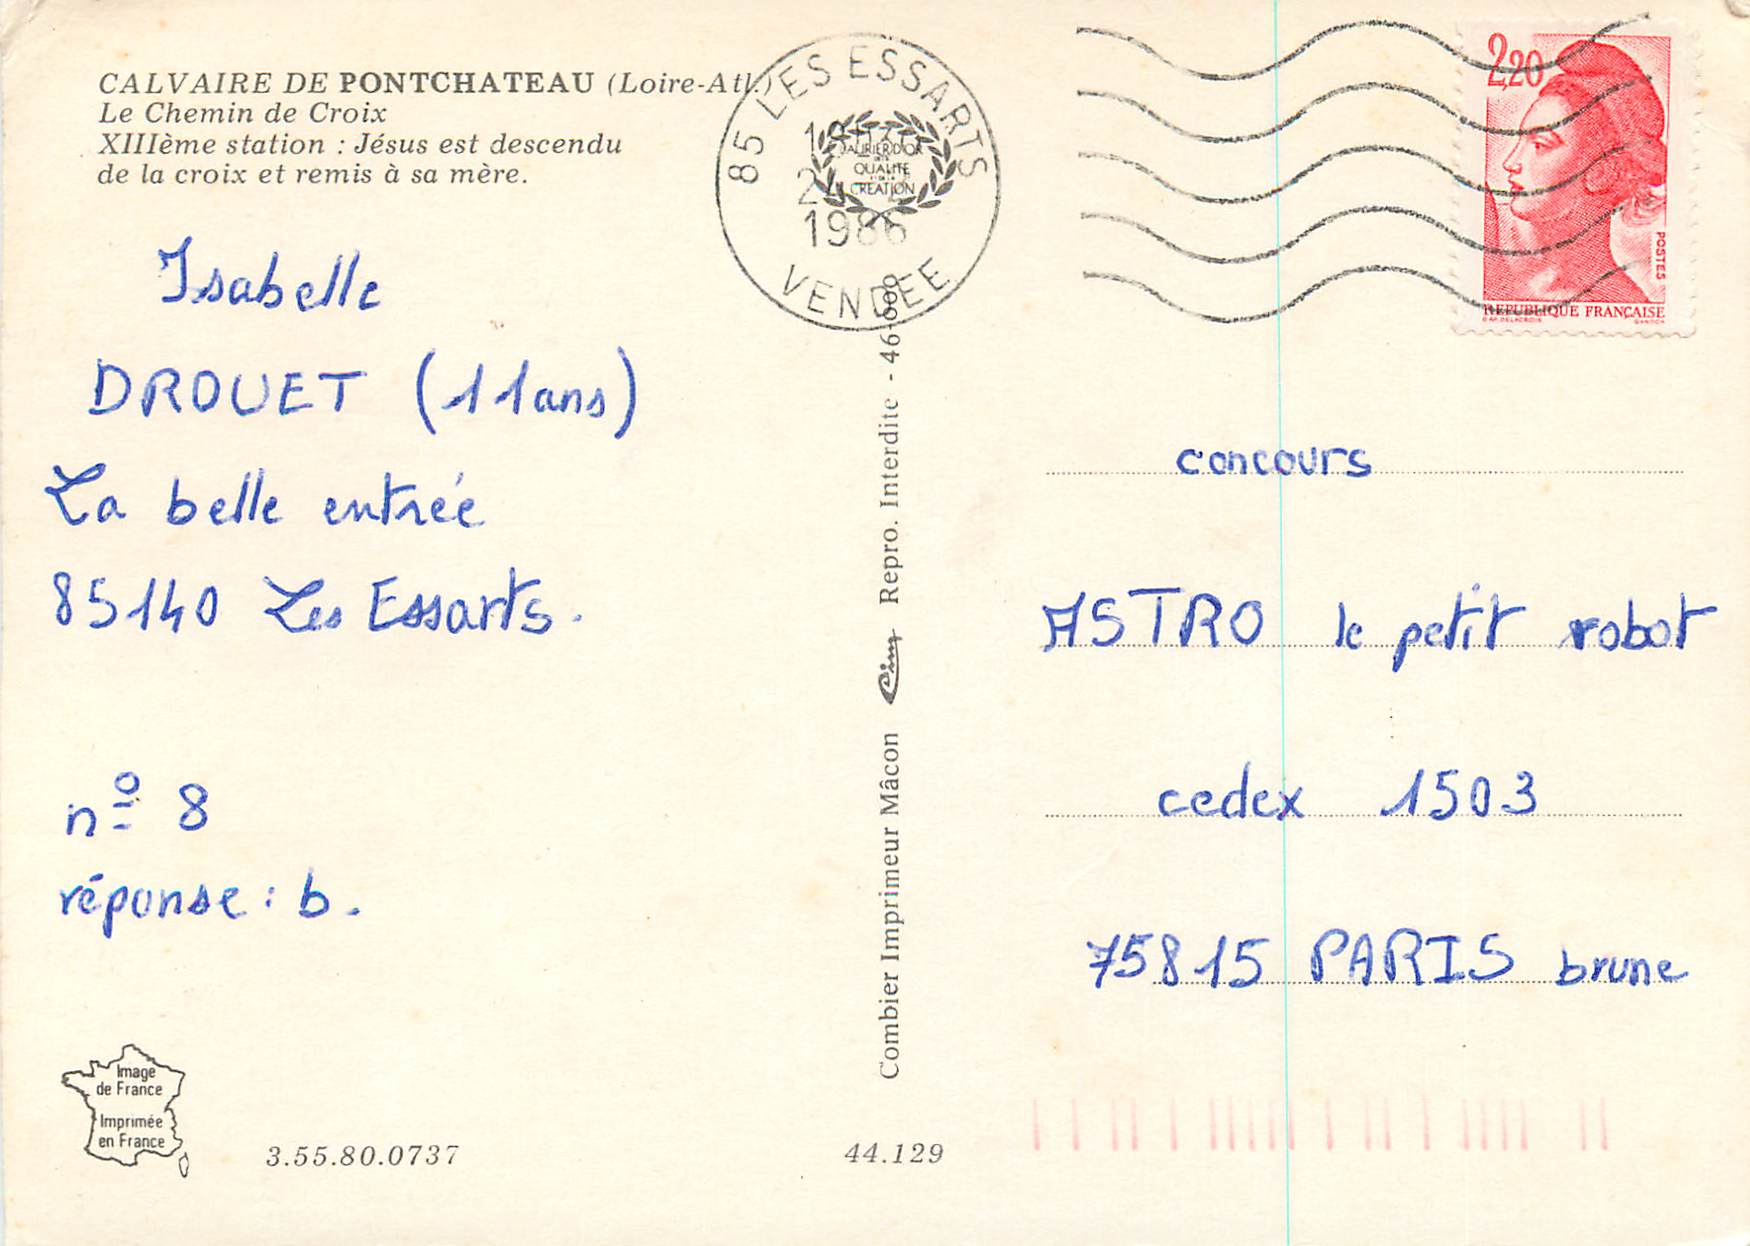 CALVAIRE DE PONTCHATEAU (Loire-Atl.)
Le Chemin de Croix
XIIIème station : Jésus est descendu
de la croix et remis à sa mère.
Isabelle
DROUET (11ans)
La belle entrée
85140 Les Essarts.
nº 8
réponse : b.
Image
de France
Imprimée
en France
3.55.80.0737
44.129
85 LES ESSARTS
1986
VENDEE
LAURIER D'OR
QUALITE
CREATION
Combier Imprimeur Mâcon Cim Repro. Interdite - 46-000
2,20
POSTES
REPUBLIQUE FRANÇAISE
concours
ASTRO le petit robot
cedex 1503
75815 PARIS brune